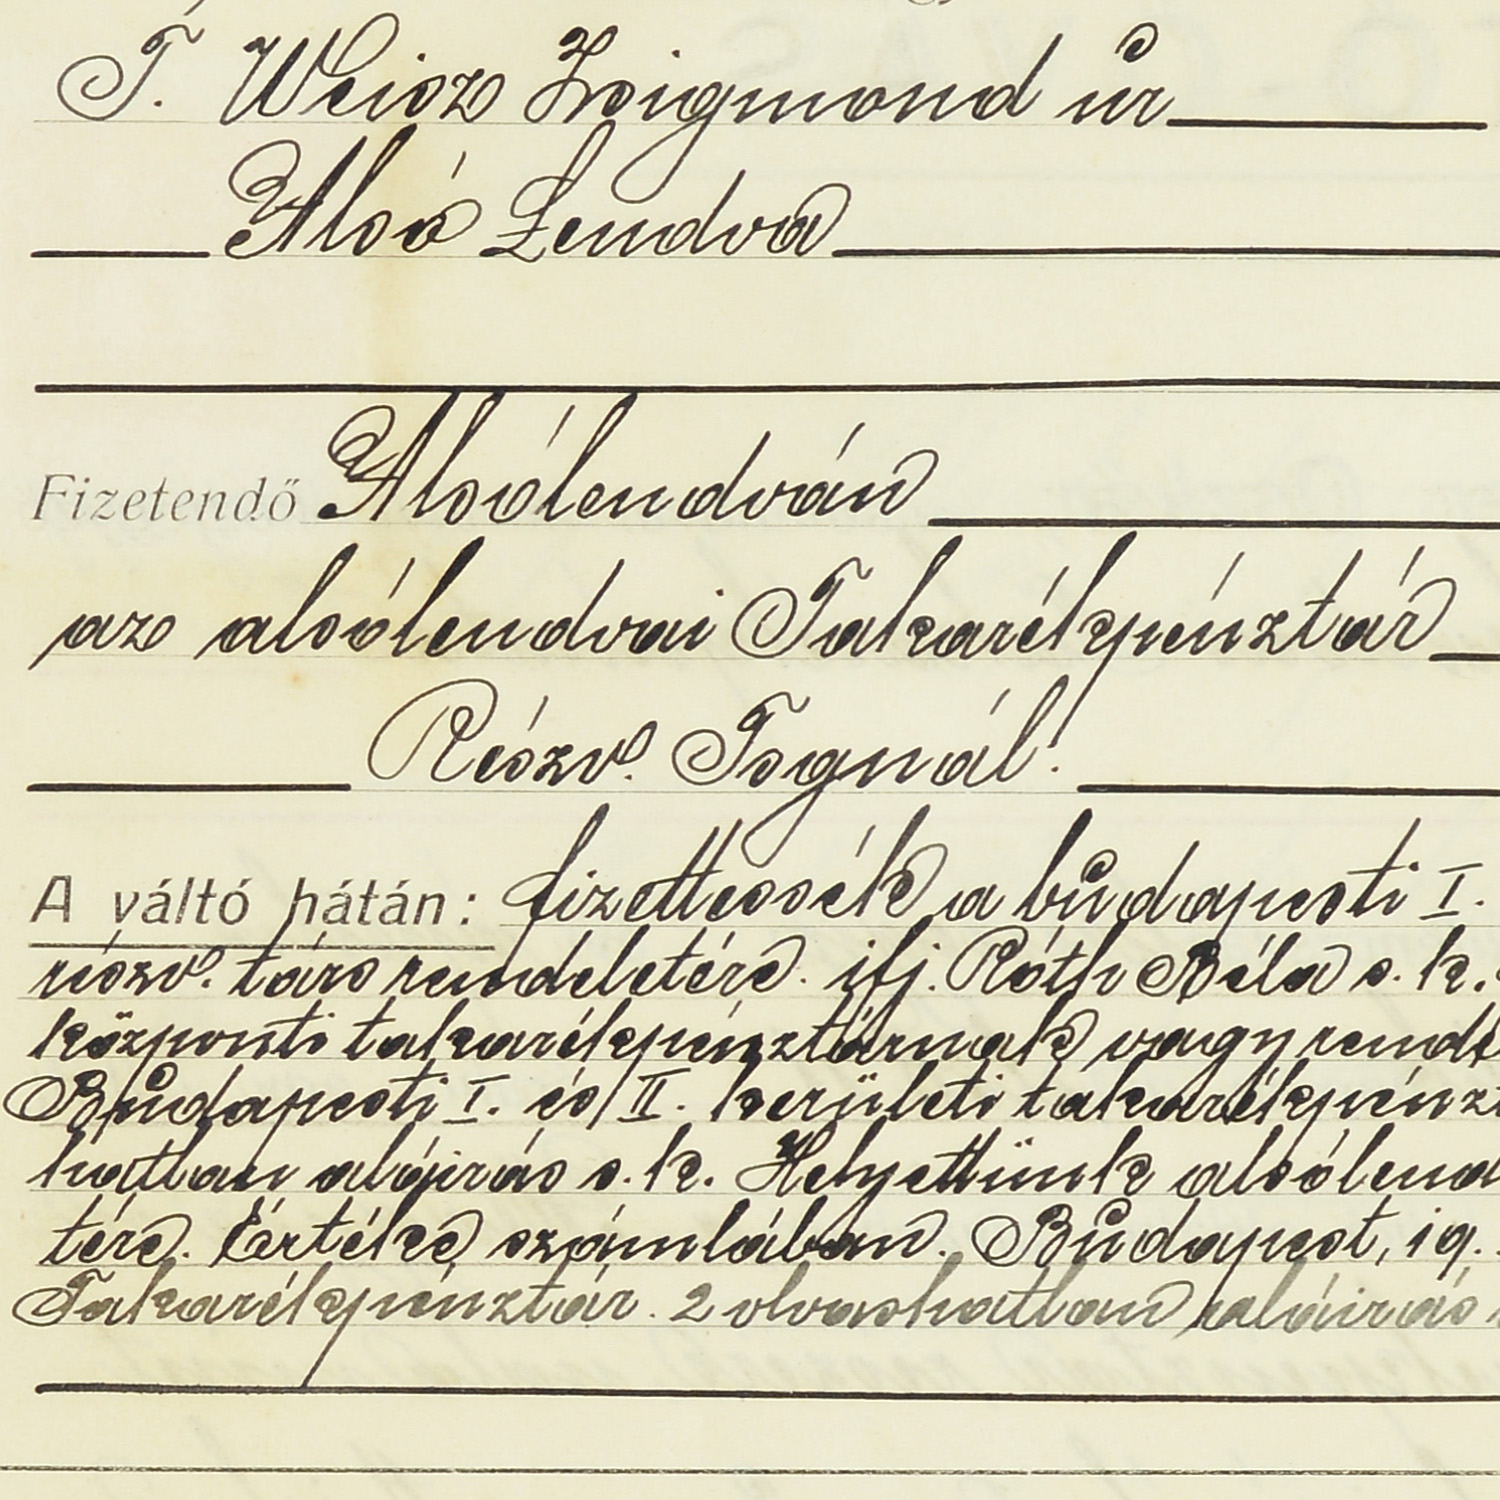 T. Weisz Zsigmond úr
Alsó Lendva
Fizetendő Alsólendván
az alsólendvai Takarékpénztár
Részv. Tsgnál.
A váltó hátán: fizettessék a budapesti I.
részv. társ rendeletére. ifj. Róth Béla s. k.
központi takarékpénztárnak vagy rend
Budapesti I. és II. kerületi takarékpénzt
hatlan aláirás s. k. Helyettünk alsólend
tére. Értéke számlában. Budapest, 19.
Takarékpénztár. 2 olvashatlan aláirás